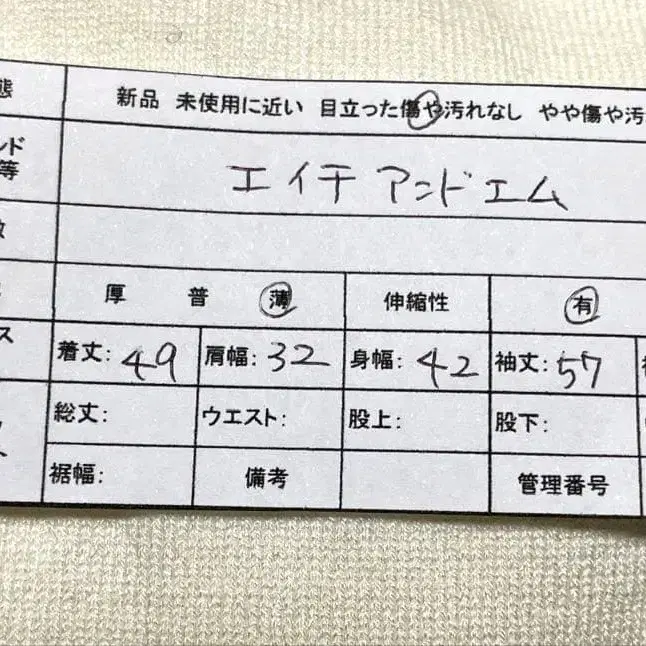 態 新品 未使用に近い 目立った傷や汚れなし やや傷や汚
ンド
等 エイチアンドエム
厚 普 薄 伸縮性 有
ス 着丈: 49 肩幅: 32 身幅: 42 袖丈: 57
総丈: ウエスト: 股上: 股下:
裾幅: 備考 管理番号